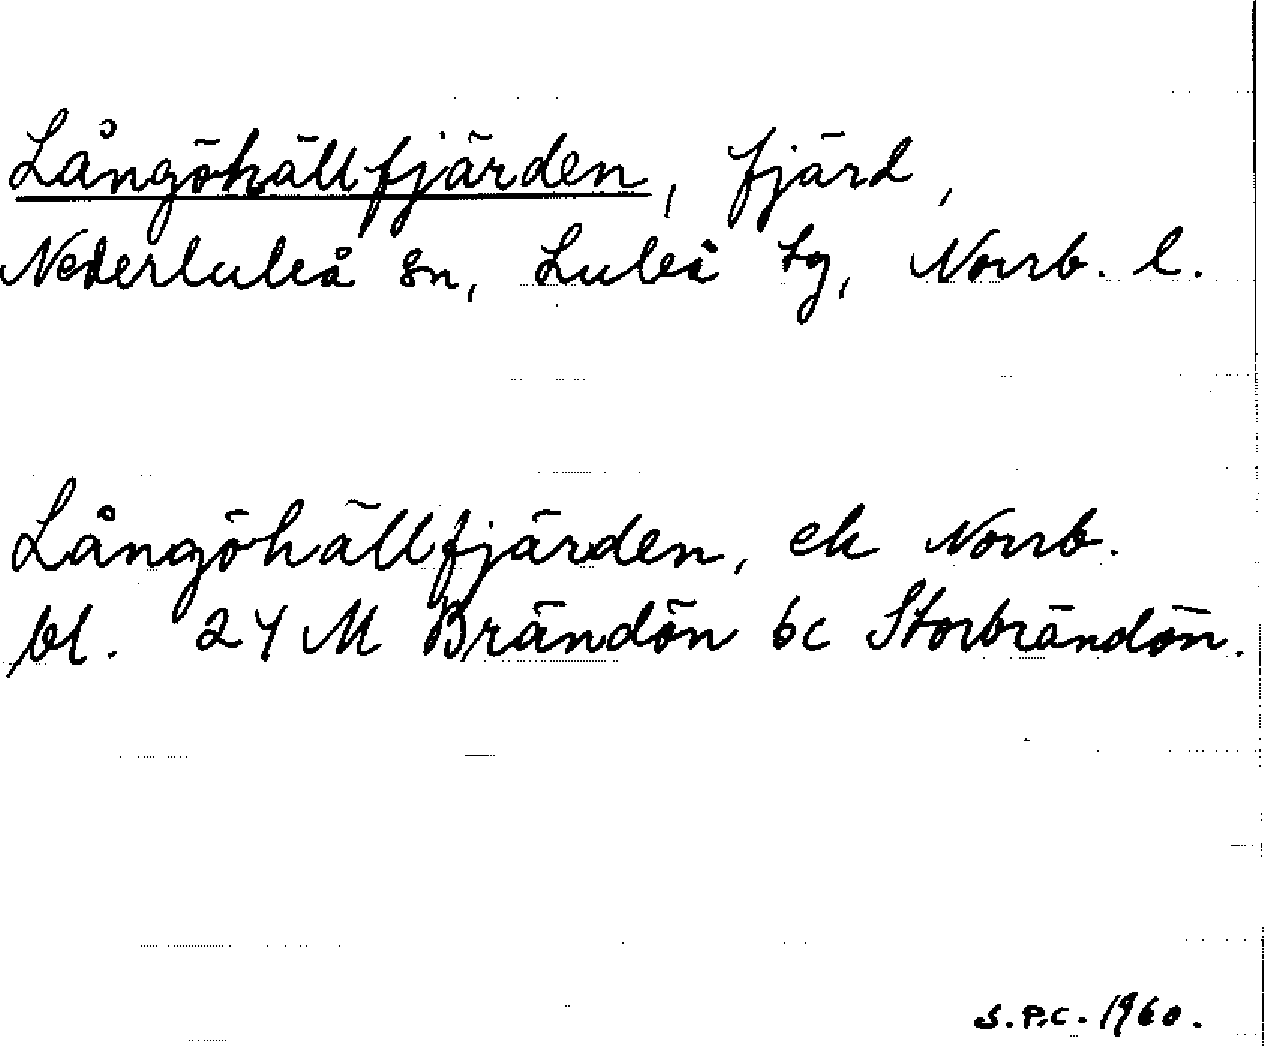 Långöhällfjärden, fjärd,
Nederluleå sn, Luleå tg, Norrb. l.
Långöhällfjärden, ek Norrb.
bl. 24 M Brändön bc Storbrändön.
S.P.C. 1960.